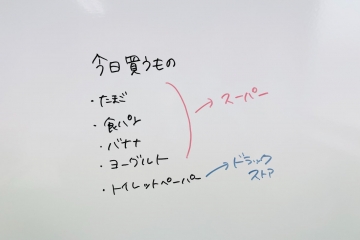 今日買うもの
・たまご
・食パン
・バナナ
・ヨーグルト
→スーパー
・トイレットペーパー
→ドラック
ストア